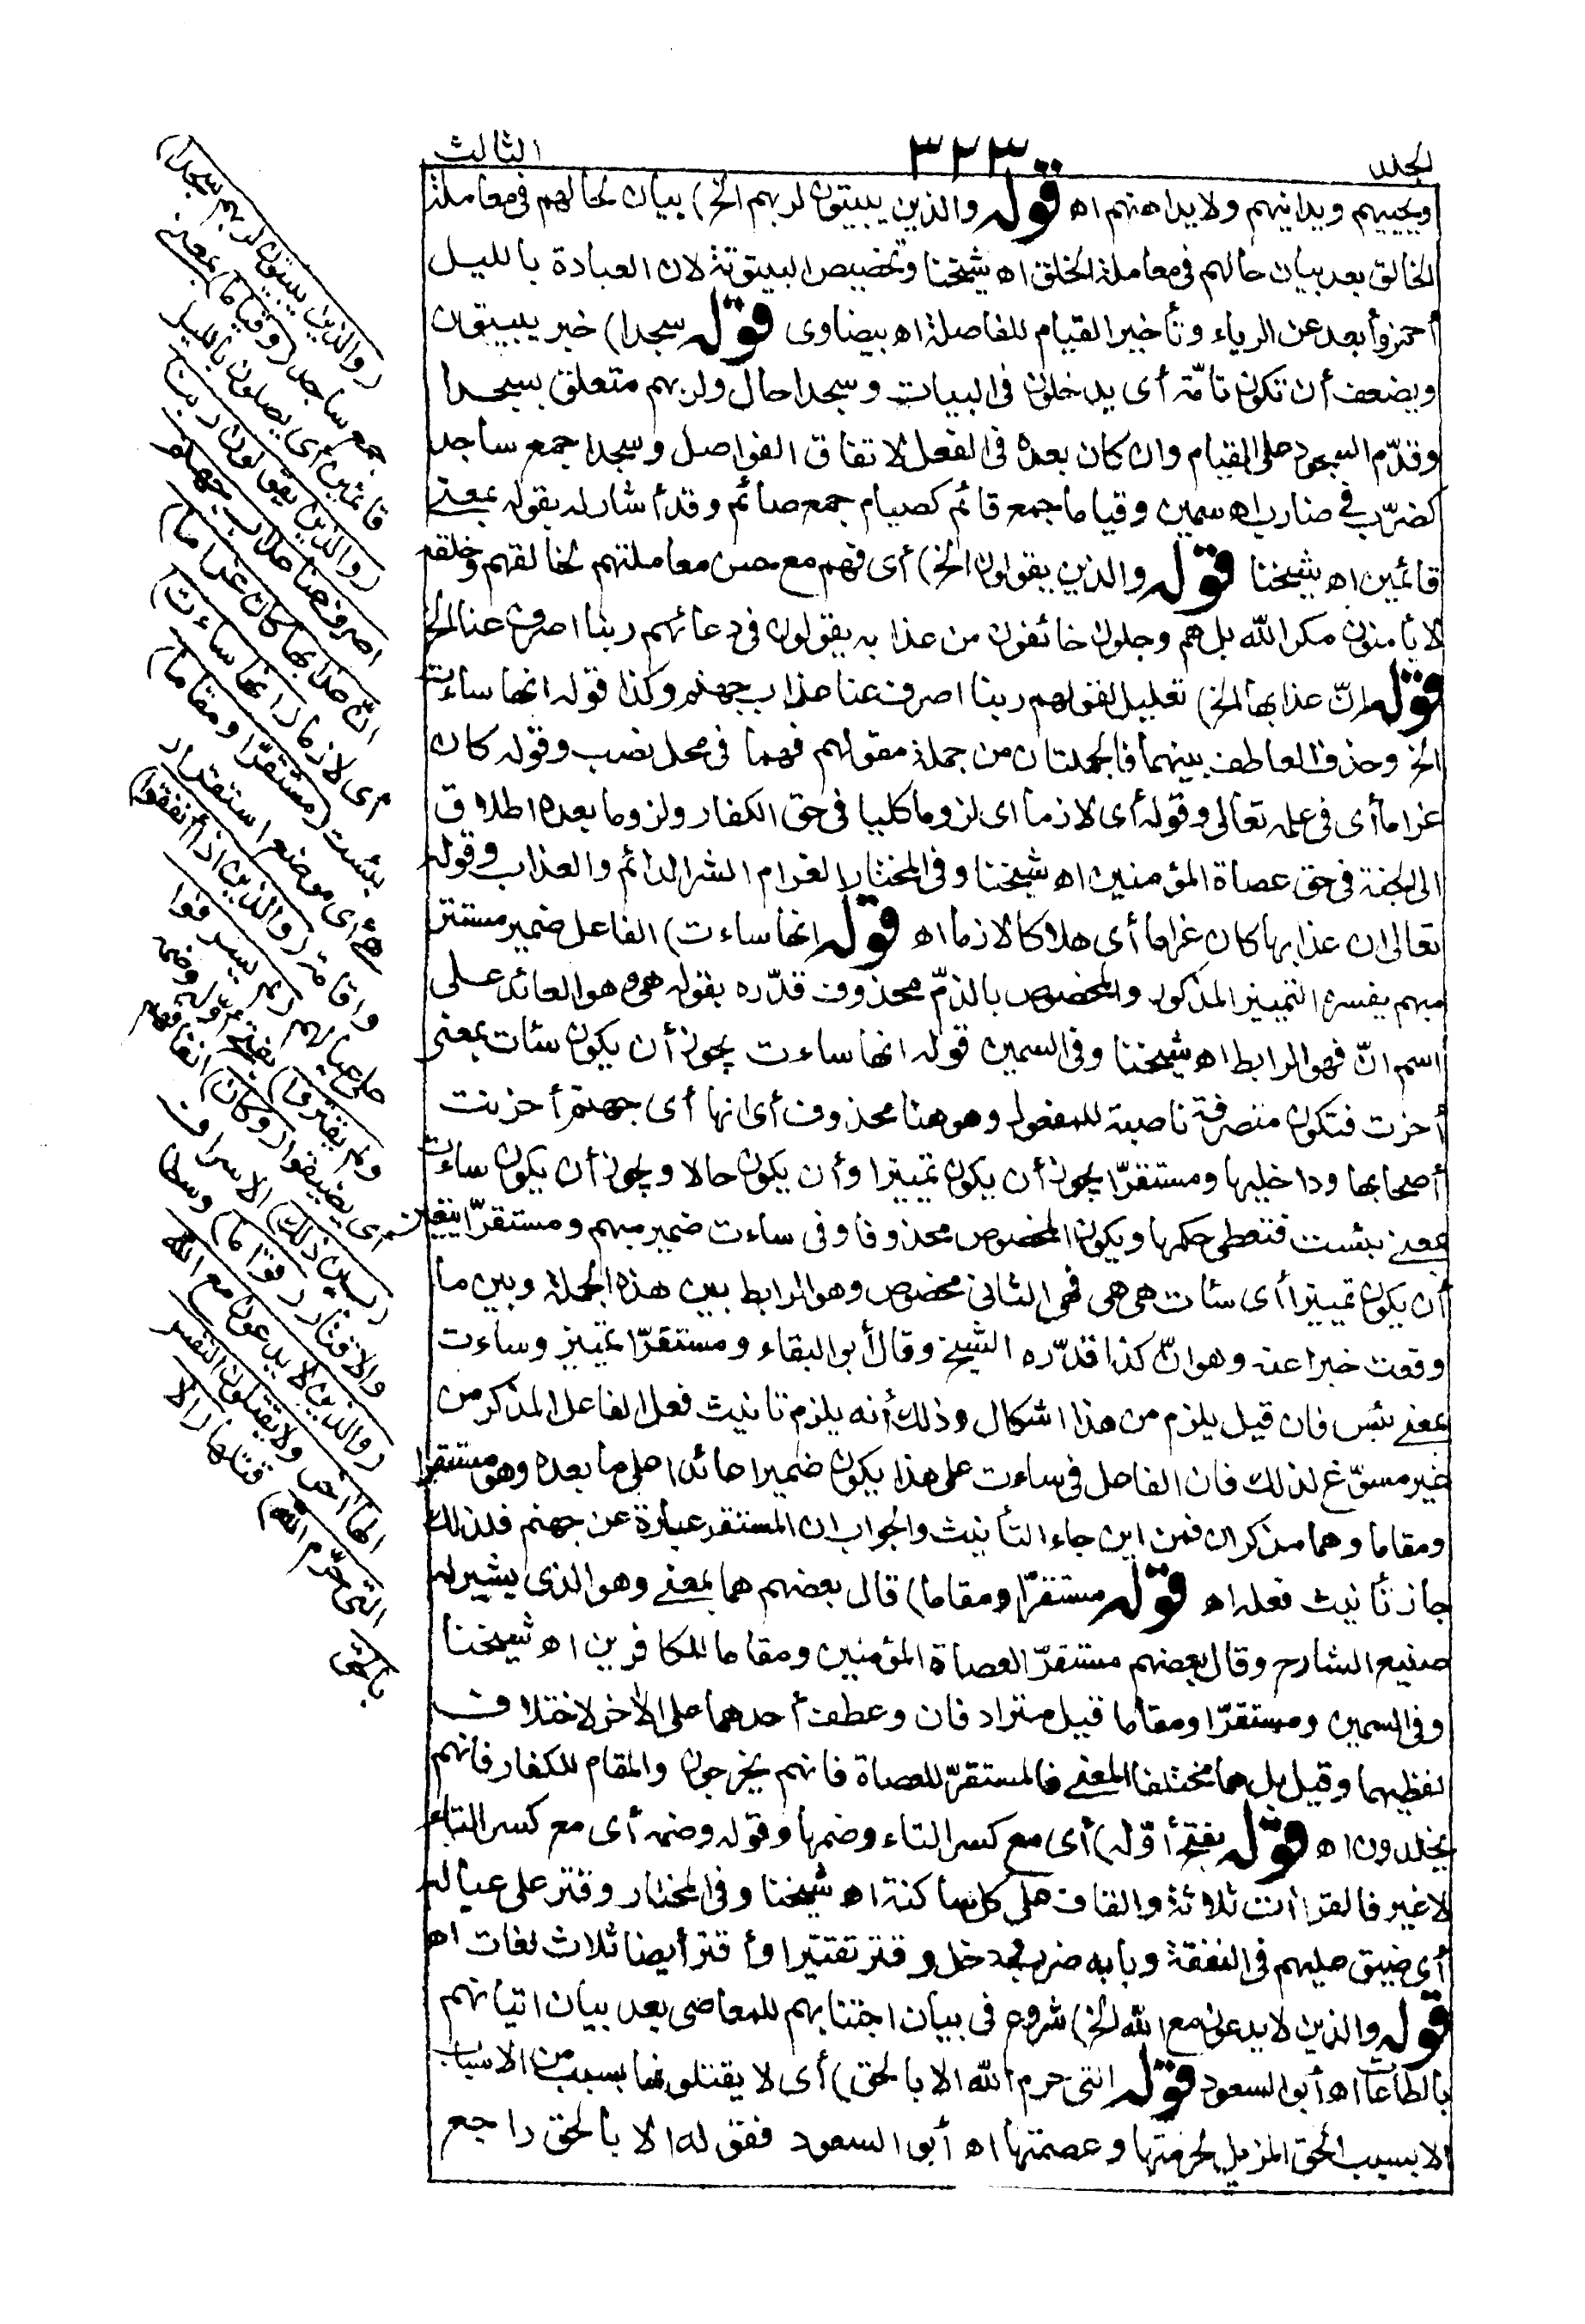 الجلد ٣٢٣ الثالث
ويجيبهم ويدانيهم ولا يداهنهم اه قوله والذين يبيتون لربهم الخ) بيان لحالهم فى معاملة
الخالق بعد بيان حالهم فى معاملة الخلق اه شيخنا وتخصيص البيتوتة لان العبادة بالليل
أحمز وأبعد عن الرياء وتأخير القيام للفاصلة اه بيضاوى قوله سجدا) خبر يبيتون
ويضعف أن تكون تامّة أى يدخلون فى البيات وسجدا حال ولربهم متعلق بسجدا
وقدّم السجود على القيام وان كان بعده فى الفعل لاتفاق الفواصل وسجدا جمع ساجد
كضرّب فى ضارب اه سمين وقياما جمع قائم كصيام جمع صائم وقد أشار له بقوله بمعنى
قائمين اه شيخنا قوله والذين يقولون الخ) أى فهم مع حسن معاملتهم لخالقهم وخلقه
لا يأمنون مكر الله بل هم وجلون خائفون من عذابه يقولون فى دعائهم ربنا اصرف عنا الخ
قوله انّ عذابها الخ) تعليل لقولهم ربنا اصرف عنا عذاب جهنم وكذا قوله انها ساءت
الخ وحذف العاطف بينهما فالجملتان من جملة مقولهم فهما فى محل نصب وقوله كان
غراما أى فى علمه تعالى وقوله أى لازما اى لزوما كليا فى حق الكفار ولزوما بعده اطلاق
الى الجنة فى حق عصاة المؤمنين اه شيخنا وفى المختار الغرام الشر الدائم والعذاب وقوله
تعالى ان عذابها كان غراما أى هلاكا لازما اه قوله انها ساءت) الفاعل ضمير مستتر
مبهم يفسره التمييز المذكور والمخصوص بالذمّ محذوف قدّره بقوله هى وهو العائد على
اسم انّ فهو الرابط اه شيخنا وفى السمين قوله انها ساءت يجوز أن يكون سائت بمعنى
أحزت فتكون منصرفة ناصبة للمفعول وهو هنا محذوف أى انها أى جهنم أحزنت
أصحابها وداخليها ومستقرّا يجوز أن يكون تمييزا وأن يكون حالا ويجوز أن يكون ساءت
بمعنى بئست فتعطى حكمها ويكون المخصوص محذوفا وفى ساءت ضمير مبهم ومستقرّا يتعين
أن يكون تمييزا أى سئات هى هى فهى الثانى مخصوص وهو الرابط بين هذه الجملة وبين ما
وقعت خبرا عنه وهو انّ كذا قدّره الشيخ وقال أبو البقاء ومستقرّا تمييز وساءت
بمعنى بئس فان قيل يلزم من هذا اشكال وذلك أنه يلزم تانيث فعل الفاعل المذكر من
غير مسوّغ لذلك فان الفاعل فى ساءت على هذا يكون ضميرا عائدا على ما بعده وهو مستقرا
ومقاما وهما مذكران فمن اين جاء التأنيث والجواب ان المستقر عبارة عن جهنم فلذلك
جاز تأنيث فعله اه قوله مستقرّا ومقاما) قال بعضهم هما بمعنى وهو الذى يشير له
صنيع الشارح وقال بعضهم مستقرّ العصاة المؤمنين ومقاما للكافرين اه شيخنا
وفى السمين ومستقرّا ومقاما قيل مترادفان وعطف أحدهما على الآخر لاختلاف
لفظيهما وقيل بل هما مختلفا المعنى فالمستقرّ للعصاة فانهم يخرجون والمقام للكفار فانهم
يخلدون اه قوله بفتح أوّله) أى مع كسر التاء وضمها وقوله وضمه أى مع كسر التاء
لا غير فالقراآت ثلاثة والقاف على كل ساكنة اه شيخنا وفى المختار وقتر على عياله
أى ضيق عليهم فى النفقة وبابه ضرب ودخل وقتر تقتيرا وأقتر أيضا ثلاث لغات اه
قوله والذين لا يدعون مع الله الخ) شروع فى بيان اجتنابهم للمعاصى بعد بيان اتيانهم
بالطاعات اه أبو السعود قوله التى حرم الله الا بالحق) أى لا يقتلونها بسبب من الاسباب
الا بسبب الحق المزيل لحرمتها وعصمتها اه أبو السعود فقوله الا بالحق راجع
(والذين يبيتون لربهم سجدا)
جمع ساجد (وقياما) بمعنى
قائمين أى يصلون بالليل
(والذين يقولون ربنا
اصرف عنا عذاب جهنم
انّ عذابها كان غراما)
أى لازما (انها ساءت)
بئست (مستقرّا ومقاما)
هى أى موضع استقرار
واقامة (والذين اذا أنفقوا)
على عيالهم (لم يسرفوا
ولم يقتروا) بفتح أوّله وضمه
أى يضيقوا (وكان) انفاقهم
(بين ذلك) الاسراف
والاقتار (قواما) وسطا
(والذين لا يدعون مع الله
الها آخر ولا يقتلون النفس
التى حرّم الله) قتلها (الا
بالحق